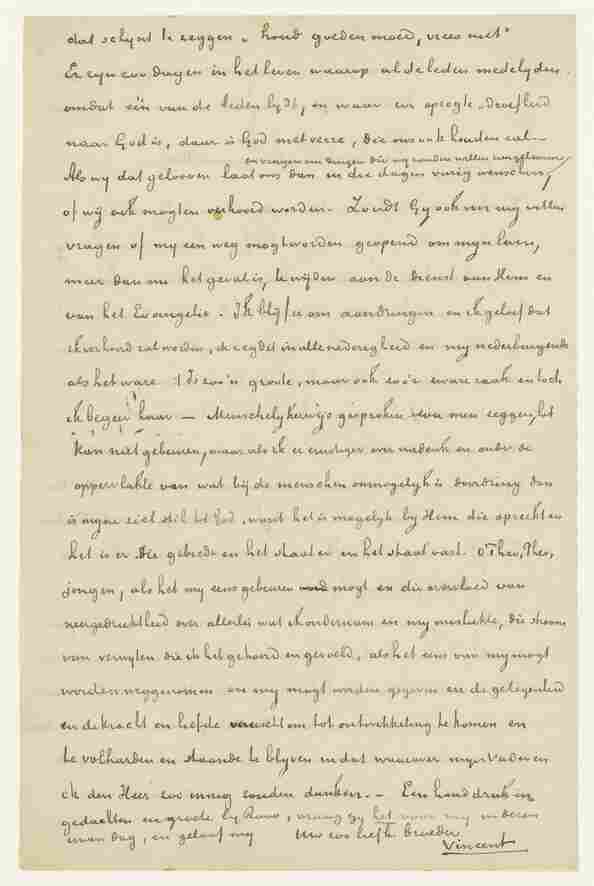 dat schynt te zeggen „houd goeden moed, vrees niet"
Er zyn zoo dagen in het leven waarop al de leden medelyden
omdat één van de leden lydt, en waar een opregte droefheid
naar God is, daar is God niet verre, die ons ook houden zal –
en vragen om dingen die wy zouden willen
Als wy dat gelooven laat ons dan in die dagen vurig wenschen,
of wij ook mogten verhoord worden. Zoudt Gy ook voor my willen
vragen of my een weg mogt worden geopend om myn leven,
meer dan nu het geval is, te wyden aan de dienst van Hem en
van het Evangelie. Ik blijf er om aandringen en ik geloof dat
ik verhoord zal worden, ik zeg dit in alle nederigheid en my nederbuigende
als het ware. 't Is zoo'n groote, maar ook zoo'n zware zaak en toch
ik begeer haar — Menschelykerwijs gesproken zou men zeggen, het
"kan niet" gebeuren, maar als ik er ernstiger over nadenk en onder de
oppervlakte van wat bij de menschen onmogelyk is doordring dan
is myne ziel stil tot God, want het is mogelyk by Hem die spreekt en
het is er die gebiedt en het staat er en het staat vast. O Theo, Theo,
jongen, als het my eens gebeuren mogt en die overvloed van
neergedruktheid over allerlei wat ik ondernam en my mislukte, die stroom
van verwyten die ik heb gehoord en gevoeld, als het eens van my mogt
worden weggenomen en my mogt worden gegeven en de gelegenheid
en de kracht en liefde vereischt om tot ontwikkeling te komen en
te volharden en staande te blyven in dat waarvoor myn Vader en
ik den Heer zoo innig zouden danken. — Een handdruk in
gedachten en groete by Roos, vraag gy het voor my in deren
dag, en geloof my Uw zoo liefh. broeder
Vincent